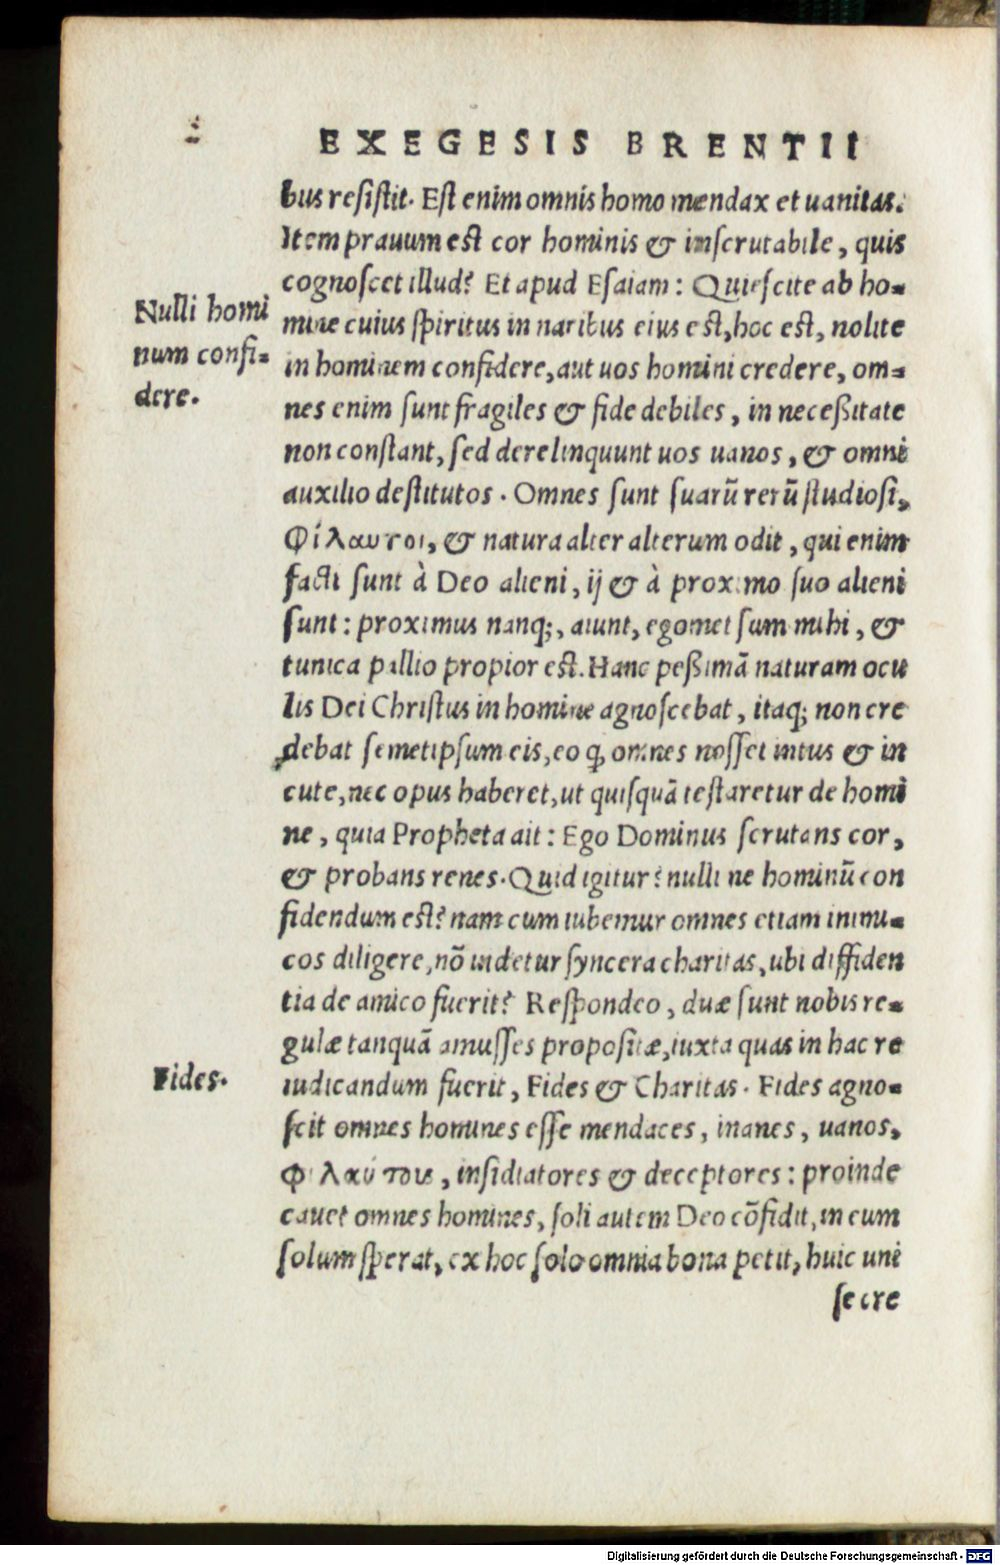 EXEGESIS BRENTII
bus resistit. Est enim omnis homo mendax et uanitas.
Item prauum est cor hominis & inscrutabile, quis
cognoscet illud? Et apud Esaiam: Quiescite ab ho-
mine cuius spiritus in naribus eius est, hoc est, nolite
in hominem confidere, aut uos homini credere, om-
nes enim sunt fragiles & fide debiles, in neceßitate
non constant, sed derelinquunt uos uanos, & omni
auxilio destitutos. Omnes sunt suarũ rerũ studiosi,
Φίλαυτοι, & natura alter alterum odit, qui enim
facti sunt à Deo alieni, ij & à proximo suo alieni
sunt: proximus nanq;, aiunt, egomet sum mihi, &
tunica pallio propior est. Hanc peßimã naturam ocu
lis Dei Christus in homine agnoscebat, itaq; non cre
debat semetipsum eis, eo ꝙ omnes nosset intus & in
cute, nec opus haberet, ut quisquã testaretur de homi
ne, quia Propheta ait: Ego Dominus scrutans cor,
& probans renes. Quid igitur? nulli ne hominũ con
fidendum est? nam cum iubemur omnes etiam inimi-
cos diligere, nõ uidetur syncera charitas, ubi diffiden
tia de amico fuerit? Respondeo, duæ sunt nobis re-
gulæ tanquã amusses propositæ, iuxta quas in hac re
iudicandum fuerit, Fides & Charitas. Fides agno-
scit omnes homines esse mendaces, inanes, uanos,
Φιλαύτους, insidiatores & deceptores: proinde
cauet omnes homines, soli autem Deo cõfidit, in eum
solum sperat, ex hoc solo omnia bona petit, huic uni
se cre
Nulli homi
num confi-
dere.
Fides.
Digitalisierung gefördert durch die Deutsche Forschungsgemeinschaft - DFG